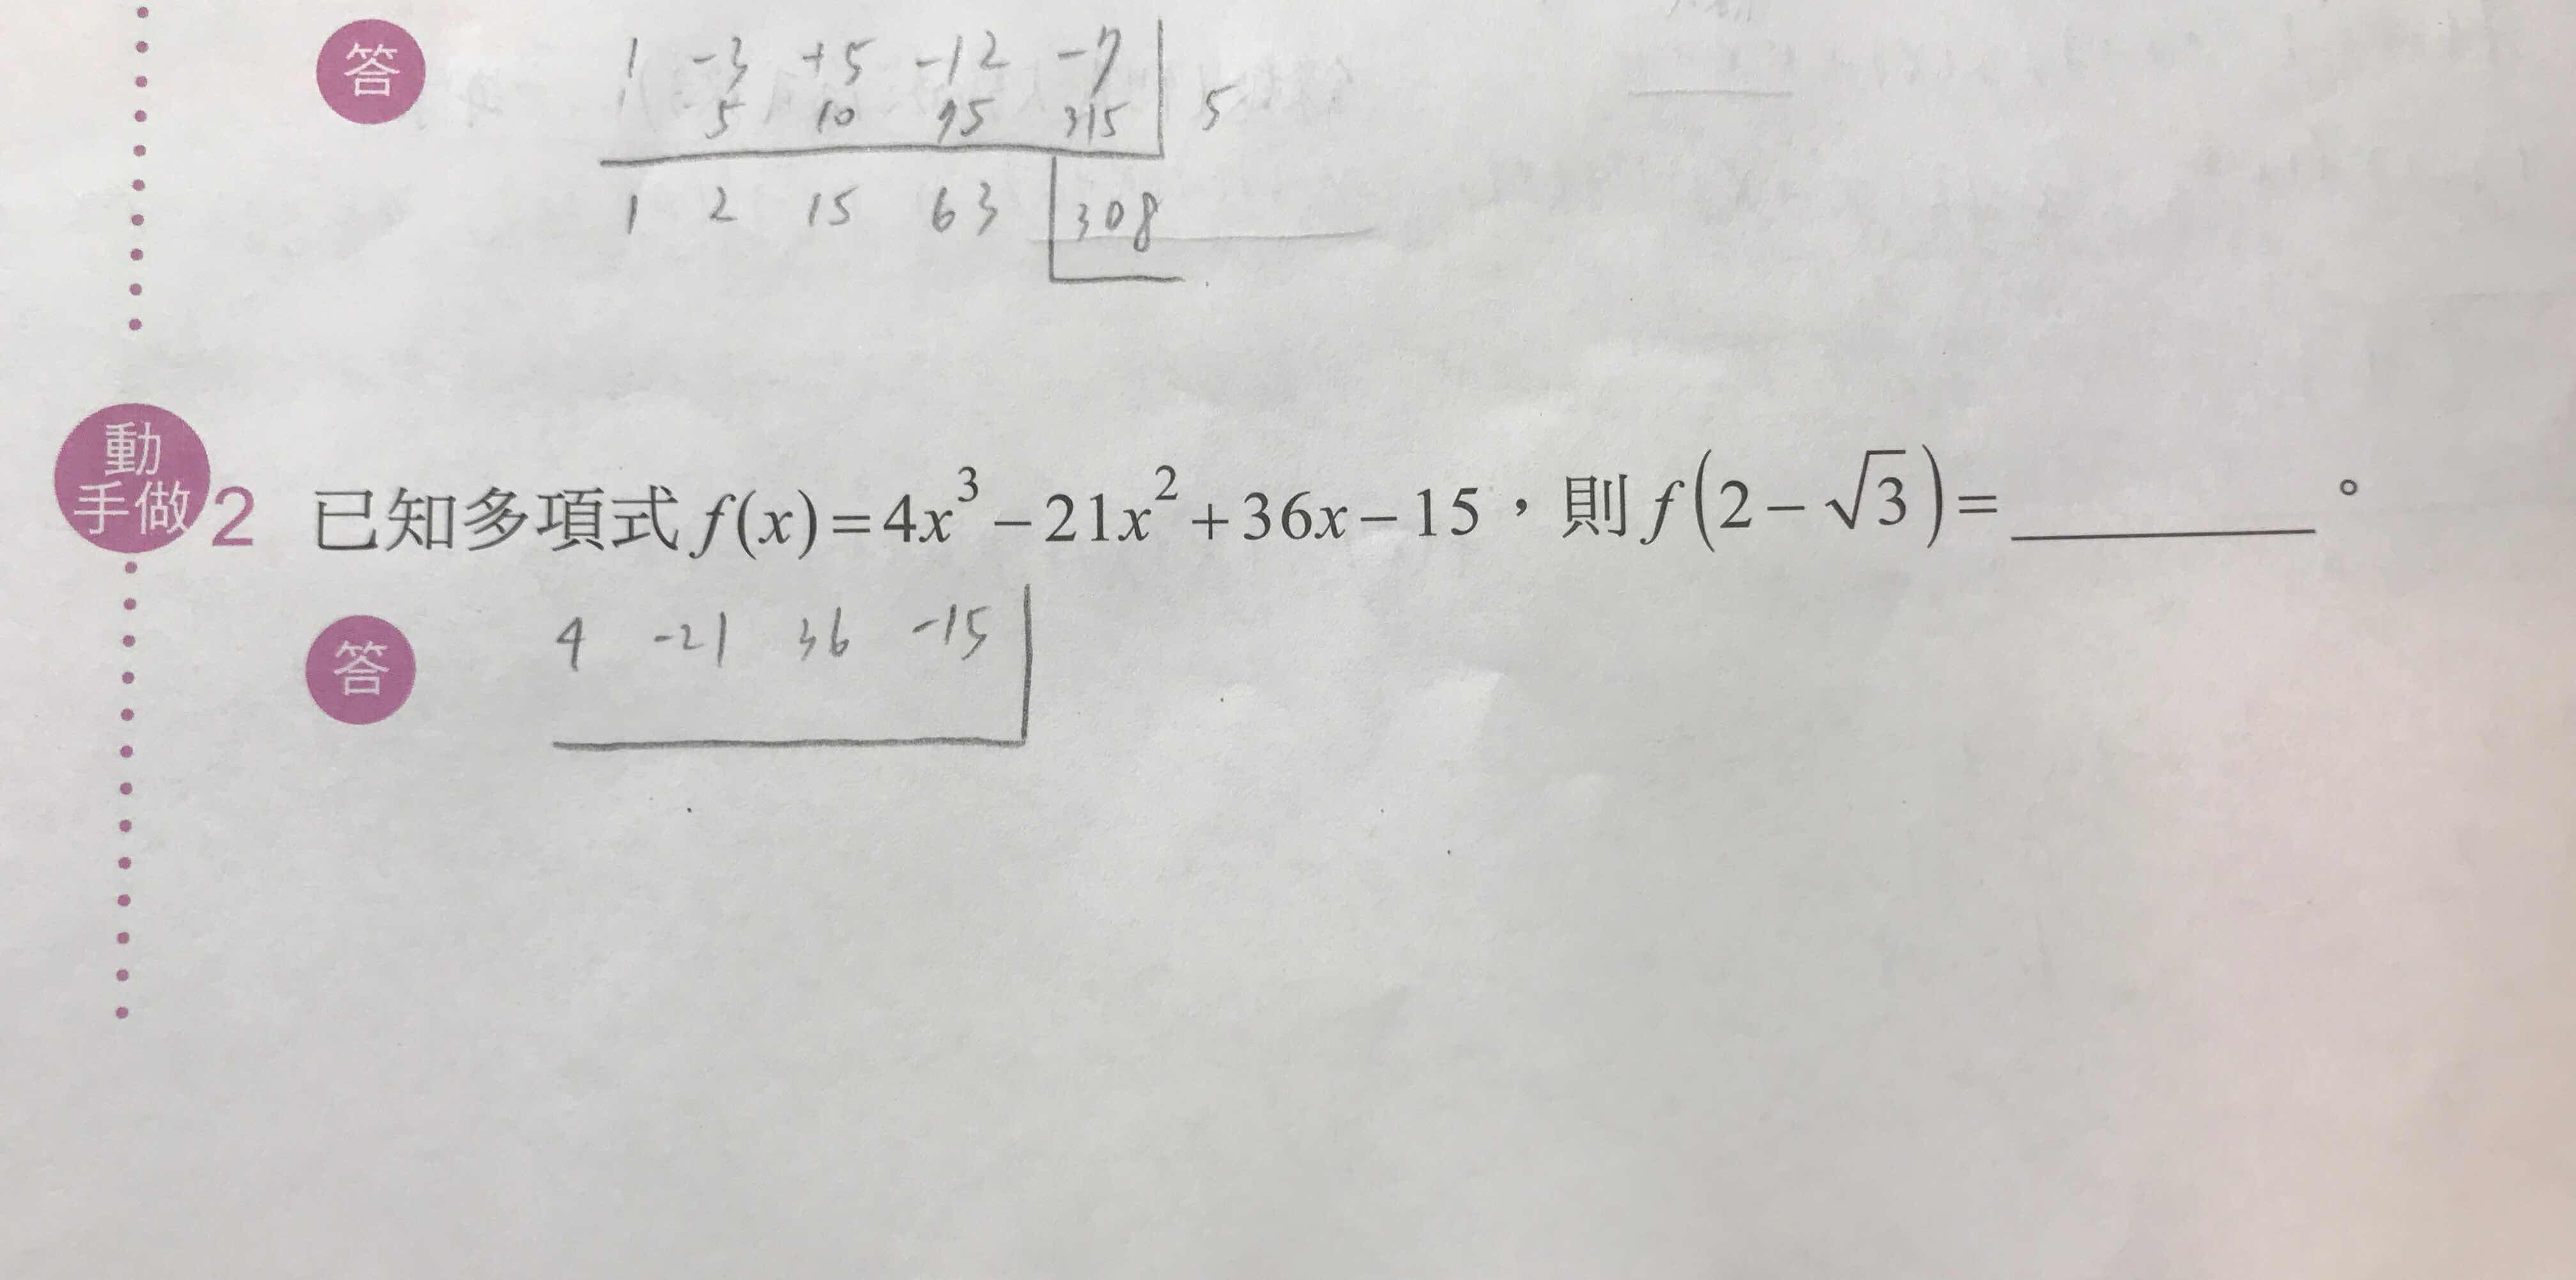 答 1 -3 +5 -12 -7
5 10 75 315 5
1 2 15 63 308
動手做2 已知多項式 f(x)=4x³-21x²+36x-15，則 f(2-√3)=______。
答 4 -21 36 -15